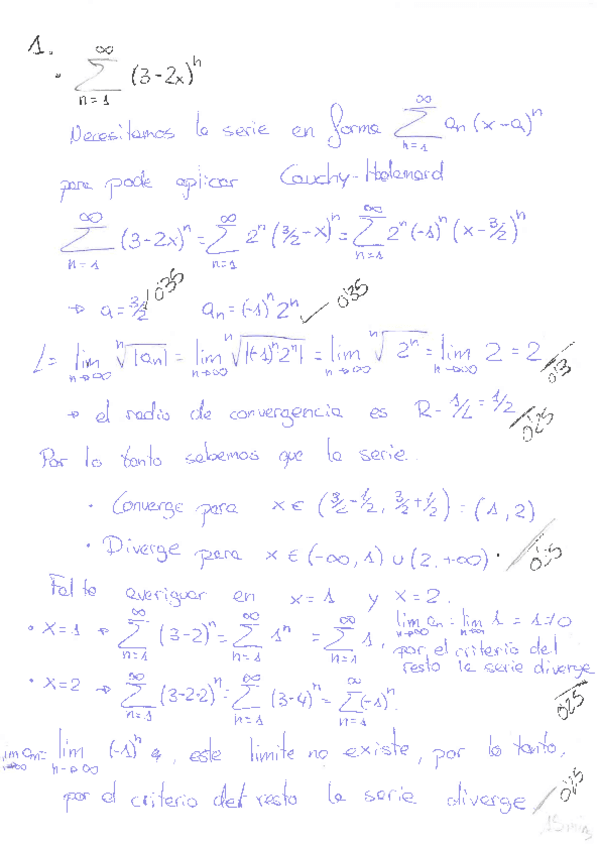 1.
• \sum_{n=1}^{∞} (3-2x)^n
Necesitamos la serie en forma \sum_{n=1}^{∞} a_n (x-a)^n
para pode aplicar Cauchy-Hadamard
\sum_{n=1}^{∞} (3-2x)^n = \sum_{n=1}^{∞} 2^n (3/2-x)^n = \sum_{n=1}^{∞} 2^n (-1)^n (x-3/2)^n
→ a = 3/2 0'35 a_n = (-1)^n 2^n 0'35
L = lim_{n→∞} \sqrt[n]{|a_n|} = lim_{n→∞} \sqrt[n]{|(-1)^n 2^n|} = lim_{n→∞} \sqrt[n]{2^n} = lim_{n→∞} 2 = 2 0'3
→ el radio de convergencia es R = 1/L = 1/2 0'25
Por lo tanto sabemos que la serie.
• Converge para x ∈ (3/2-1/2, 3/2+1/2) = (1,2)
• Diverge para x ∈ (-∞, 1) ∪ (2, +∞). 0'5
Falta averiguar en x=1 y x=2.
• x=1 → \sum_{n=1}^{∞} (3-2)^n = \sum_{n=1}^{∞} 1^n = \sum_{n=1}^{∞} 1, lim_{n→∞} a_n = lim_{n→∞} 1 = 1 ≠ 0
por el criterio del
resto la serie diverge
0'25
• x=2 → \sum_{n=1}^{∞} (3-2·2)^n = \sum_{n=1}^{∞} (3-4)^n = \sum_{n=1}^{∞} (-1)^n.
lim_{n→∞} a_n = lim_{n→∞} (-1)^n, este limite no existe, por lo tanto,
por el criterio del resto la serie diverge 0'25